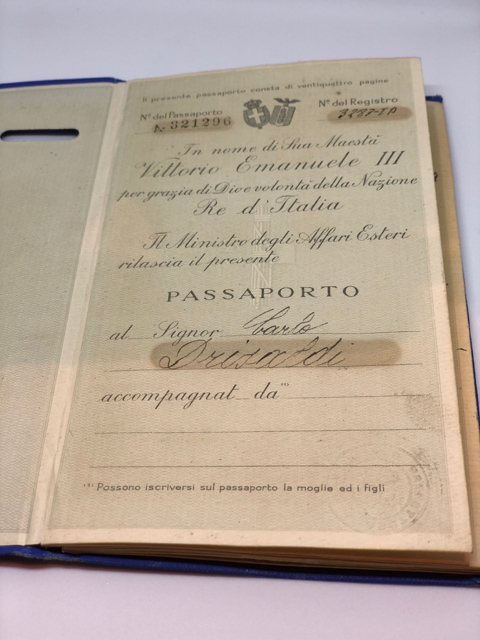 Il presente passaporto consta di ventiquattro pagine
Nº del Passaporto
321296
Nº del Registro
In nome di Sua Maestà
Vittorio Emanuele III
per grazia di Dio e volontà della Nazione
Re d'Italia
Il Ministro degli Affari Esteri
rilascia il presente
PASSAPORTO
al Signor Carlo
Drisaldi
accompagnat da (*)
(*) Possono iscriversi sul passaporto la moglie ed i figli